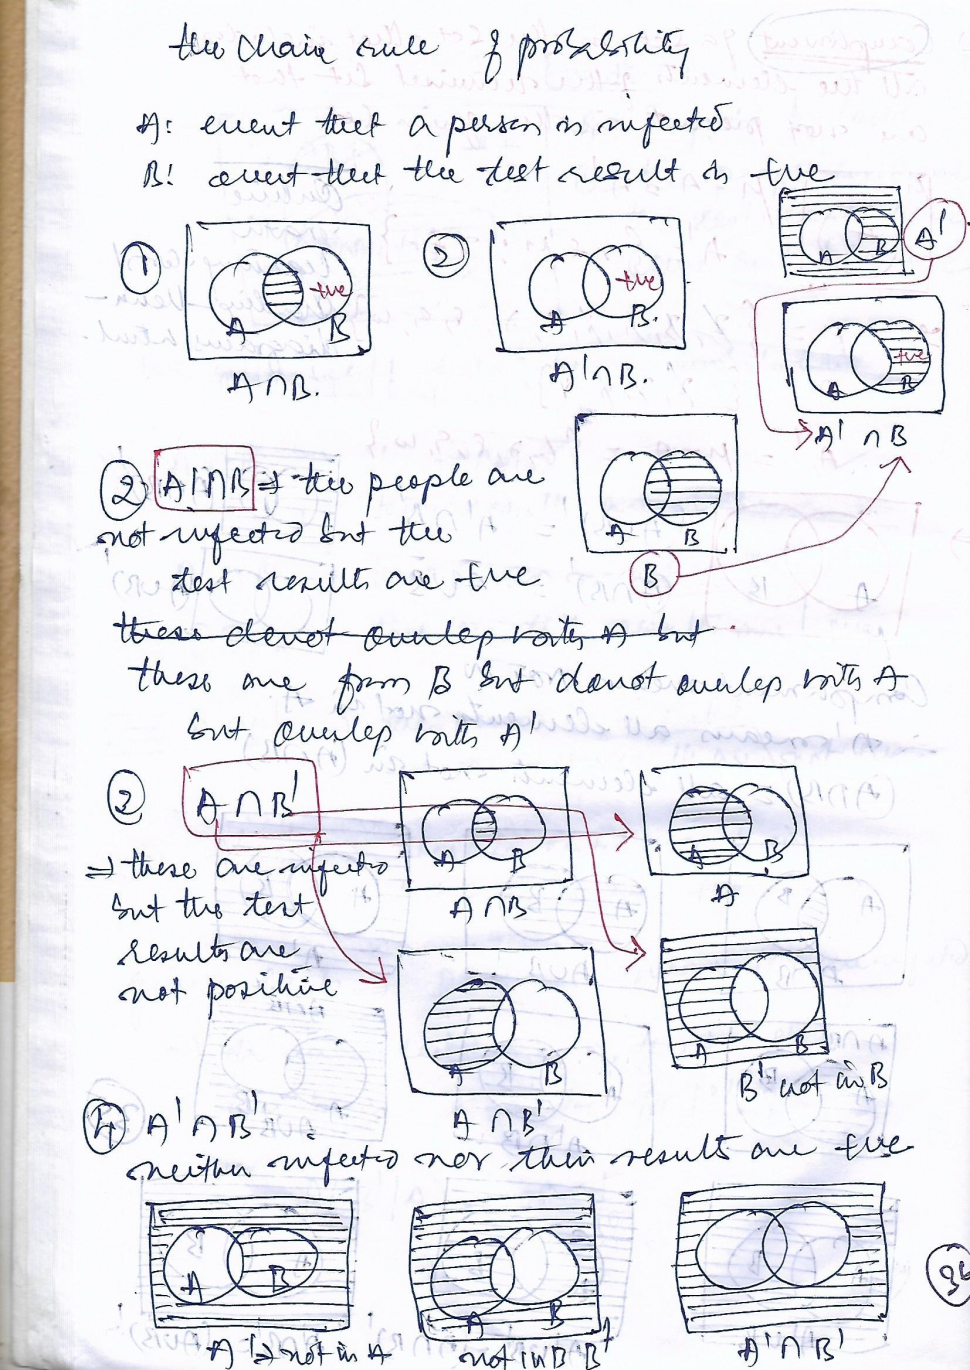 the chain rule of probability
A: event that a person is infected
B: event that the test result is +ve
A B A'
① A +ve B A∩B.
② A +ve B. A'∩B.
A +ve B A' ∩ B
② A'∩B ⇒ the people are
not infected but the
test results are +ve.
A B
B
these donot overlap with A but
these are from B but donot overlap with A
but overlap with A'
② A ∩ B'
A B A∩B
A B A
⇒ these are infected
but the test
results are
not positive
A B A ∩ B'
A B B' not in B
④ A' ∩ B'.
neither infected nor their results are +ve
A B A' ⇒ not in A
A B not in B B'
A' ∩ B'